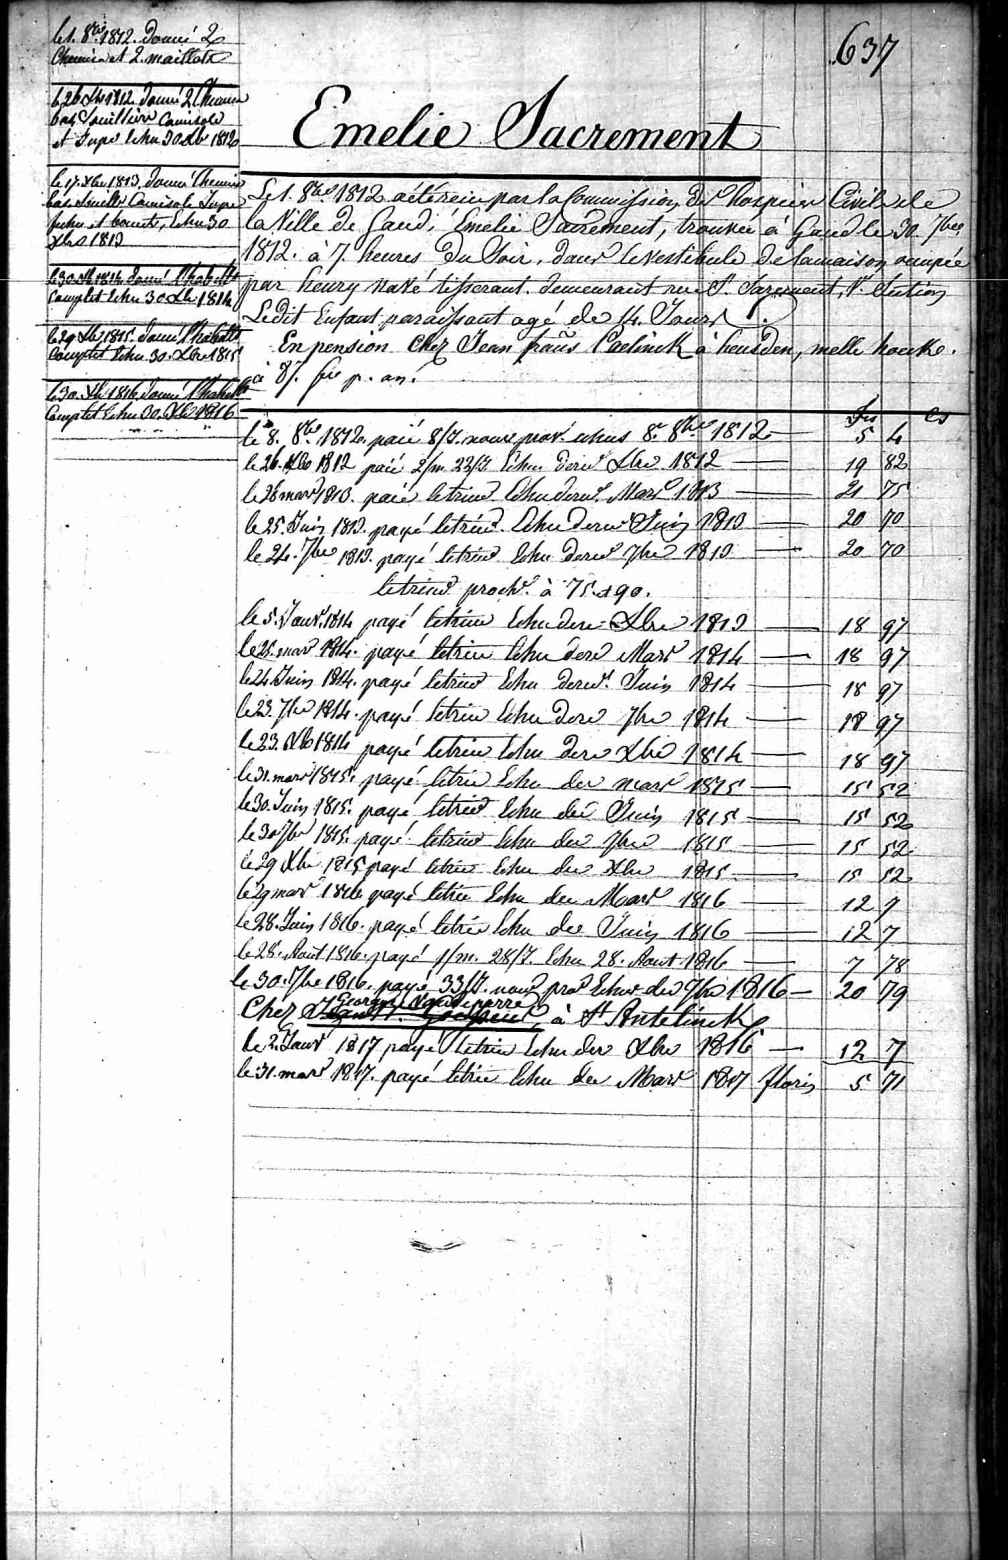 637
le 1. 8bre 1812. donné 2
Chemises et 2. maillots
le 26 Xbre 1812 donné 2 Chemises
bas, Camisole
et Jupe echu 30 Xbre 1812
le 17. Xbre 1813, donné Chemise
bas, Camisole Jupe
et bonnets, Echu 30
Xbre 1813
le 30 Xbre 1814 donné l'habill.
Complet Echu 30 Xbre 1814
le 29 Xbre 1815. donné l'habill.
Complet Echu 30. Xbre 1815
le 30. Xbre 1816 donné l'habill.
Complet Echu 30. Xbre 1816
Emelie Sacrement
Le 1. 8bre 1812 a été reçu par la Commission des hospices Civils de
la Ville de Gand, Emelie Sacrement, trouvée à Gand le 30. 7bre
1812. à 7 heures du Soir, dans le vestibule de la maison occupée
par henry navé tisserant demeurant rue St. Sacrement, S.
Ledit Enfant paraissant agé de 14. Jours.
En pension Chez Jean frans Paelinck à heusden, melle houke.
à 87. p. an.
frs cs
le 8. 8bre 1812. paié 8/J. nour. prov. echus 8. 8bre 1812 5 4
le 26. Xbre 1812 paié 2/m. 22/J. Echu dernr Xbre 1812 19 82
le 28 mars 1813. paié le trimr Echu dernr Mars 1813 21 75
le 25. Juin 1813. payé le trimr Echu dernr Juin 1813 20 70
le 24. 7bre 1813. payé le trimr Echu dernr 7bre 1813 20 70
le trimr proch. à 75.90.
le 5. Janvr 1814 payé le trim Echu der Xbre 1813 18 97
le 25. mars 1814. payé le trim Echu der Mars 1814 18 97
le 24 Juin 1814. payé le trim Echu dernr Juin 1814 18 97
le 23. 7bre 1814. payé le trim Echu der 7bre 1814 18 97
le 23. Xbre 1814 payé le trim Echu der Xbre 1814 18 97
le 31. mars 1815. payé le trim Echu der mars 1815 15 52
le 30. Juin 1815. payé le trim Echu der Juin 1815 15 52
le 30 7bre 1815. payé le trim Echu der 7bre 1815 15 52
le 29 Xbre 1815 payé le trim Echu der Xbre 1815 15 52
le 29 mars 1816 payé le trim Echu der Mars 1816 12 7
le 28. Juin 1816. payé le trim Echu der Juin 1816 12 7
le 28. Aout 1816. payé 1/m. 28/J. Echu 28. Aout 1816 7 78
le 30. 7bre 1816. payé 33/J. nour. prov. Echus der 7bre 1816 20 79
Chez Georges à St Antelinck
le 2. Janvr 1817 payé le trim Echu der Xbre 1816 12 7
le 31. mars 1817. payé le trim Echu der Mars 1817 florins 5 71